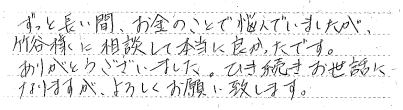 ずっと長い間、お金のことで悩んでいましたが、
竹谷様に相談して本当に良かったです。
ありがとうございました。ひき続きお世話に
なりますが、よろしくお願い致します。